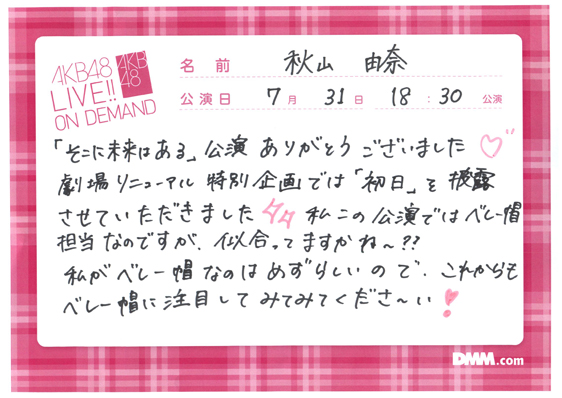 AKB48
LIVE!!
ON DEMAND
AKB
48
名前 秋山 由奈
公演日 7月 31日 18:30 公演
「そこに未来はある」公演 ありがとう ございました♡
劇場リニューアル 特別企画では「初日」を 披露
させていただきました 私この公演ではベレー帽
担当なのですが、似合ってますかね〜??
私がベレー帽なのはめずらしいので、これからも
ベレー帽に注目してみてみてくださ〜い!
DMM.com